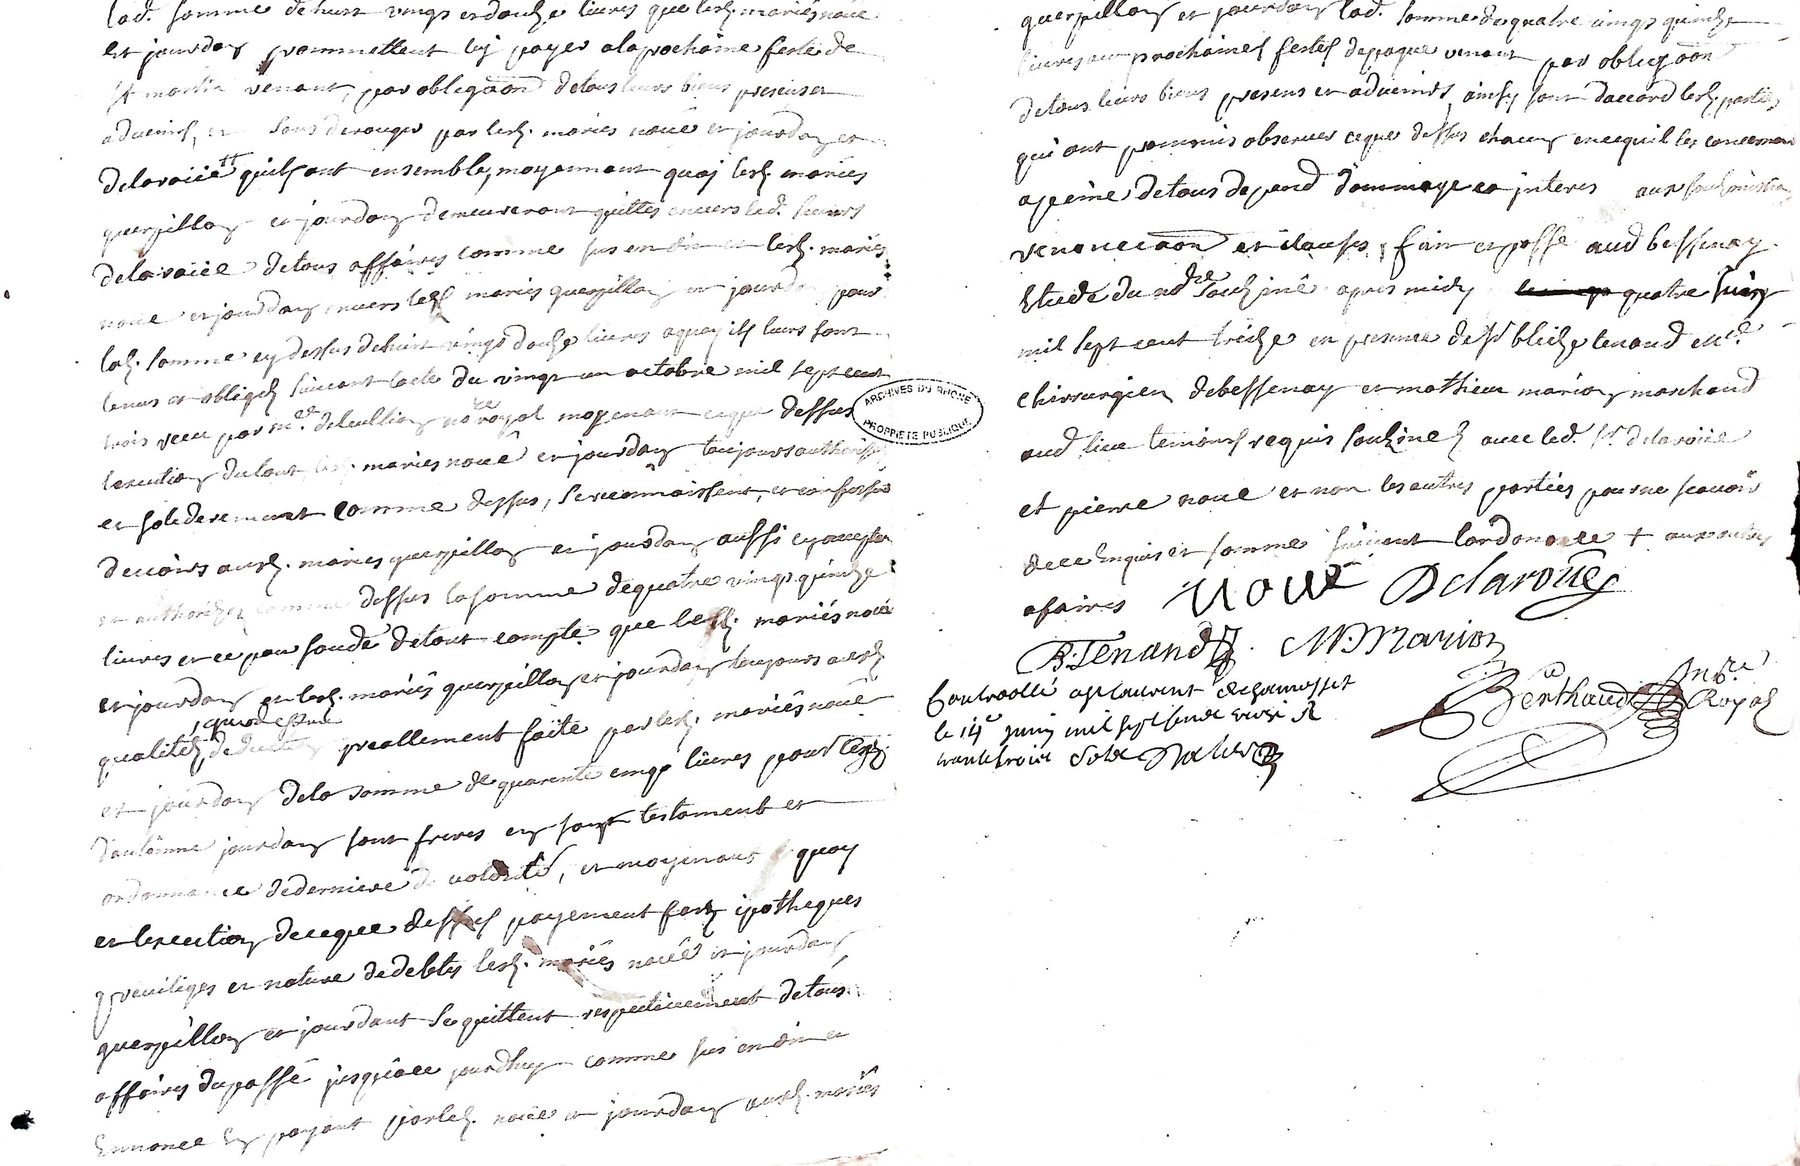 lad. somme de huit vingt et douze livres que lesd. mariés noüe
et jourdan promettent luy payer a la prochaine feste de
st martin venant, par obligaõn de tous leurs biens presens et
advenirs, et sans deroger par lesd. maries noüe et jourdan et
delaroüe quils ont ensemble, moyennant quoi lesd. mariés
querpillon et jourdan demeureront quittes envers led. sieur
delaroüe de tous affaires comme sus en dit et lesd. mariés
noüe et jourdan envers lesd. mariés querpillon et jourdan pour
lad. somme cy dessus de huit vingt douze livres a quoy ils leurs sont
tenus et obligés suivant lacte du vingt un octobre mil sept cent
trois receu par me. no.re royal moyenant ce que dessus
lexecution du tout lesd. maries noüe et jourdan toujours authorisée
et soliderement comme dessus, se reconnoissent, et confessent
devoirs ausd. maries querpillon et jourdan aussi cy acceptan
et authorizée comme dessus la somme de quatre vingt quinze
livres et ce pour solde de tout compte que lesd. mariés noüe
et jourdan et lesd. mariés querpillon et jourdan toujours ausd.
qualités, deduction preallement faite par lesd. mariés noüe
et jourdan de la somme de quarente cinq livres pour legs
dantoinne jourdan sont freres en sont testament et
ordonnance de derniere de volonté, et moyenant quoy
et lexecution de ce que dessus payement sesd. ipotheques
privileges et nature de debtes lesd. mariés noüe et jourdan
querpillon et jourdant se quittent respectivement de tous
affaires du passé jusquace jourdhuy comme sus en dit et
en payant par lesd. noüe et jourdan ausd. mariés
querpillon et jourdan lad. somme de quatre vingt quinze
livres aux prochaines festes de paque venant par obligaõn
de tous leurs biens presens et advenirs, ainsy sont daccord lesd. parties
qui ont promis observer ce que dessus chacun en ce quil les concernan
a peine de tous depend dommage et interes aux soubmission
renonciaõn et clauses, fait et passé aud bessenay
Etude du no.re soubziné apres midy quatre juin
mil sept cent treize en presence de sr blaize tenand me.
chirurgien de bessenay et mathieu marion marchand
aud lieu temoins requis soubzinés avec led. sr. delaroüe
et pierre noüe et non les autres parties pour ne scavoir
de ce Enquis et somme suivant lordonance + aux autres
afaires noue Delaroüe
B. Tenand. M. Marion
Controollé a st laurent de chamosset
le 14e juin mil sept cent treize R
trante trois sols
Berthaud n.re Royal
ARCHIVES DU RHONE
PROPRIETE PUBLIQUE